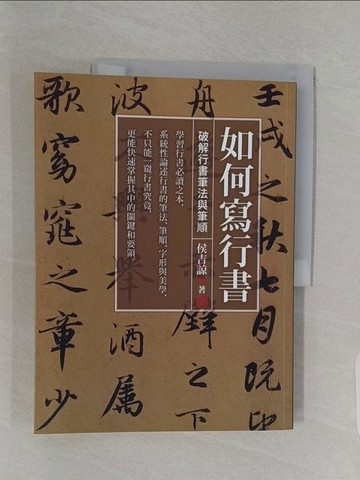 壬戌之秋七月既
舟
壁之下
波
興舉酒屬
歌窈窕之章少
如何寫行書
破解行書筆法與筆順
侯吉諒 著
學習行書必讀之本,
系統性論述行書的筆法、筆順、字形與美學,
不只能一窺行書究竟,
更能快速掌握其中的關鍵和要領。